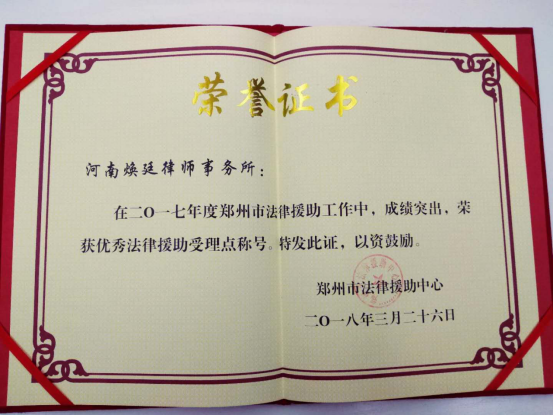 荣誉证书
河南焕廷律师事务所：
在二〇一七年度郑州市法律援助工作中，成绩突出，荣
获优秀法律援助受理点称号。特发此证，以资鼓励。
郑州市法律援助中心
二〇一八年三月二十六日